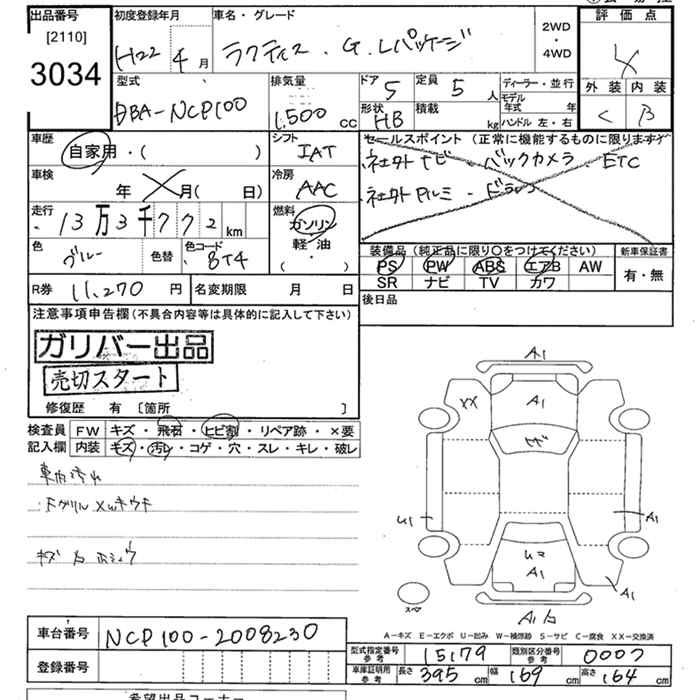 出品番号 初度登録年月 車名・グレード 2WD・4WD 評価点
[2110]
3034
H22年 4月 ラクティス・G Lパッケージ 4
型式 排気量 ドア 5 定員 5人 ディーラー・並行 外装 内装
DBA-NCP100 1,500cc 形状 HB 積載 kg モデル年式 年 C B
ハンドル 左・右
車歴 自家用・( ) シフト IAT セールスポイント (正常に機能するものに限ります)
車検 年 月( 日) 冷房 AAC ネェクト ナビ・バックカメラ・ETC
走行 13万3千772km 燃料 ガソリン・軽油・( )
色 ブルー 色替 色コード 8T4 装備品 (純正品に限り○をつけてください) 新車保証書
PS PW ABS エアB AW 有・無
SR ナビ TV カワ
R券 11,270円 名変期限 月 日 後日品
注意事項申告欄(不具合内容等は具体的に記入して下さい)
ガリバー出品
売切スタート
修復歴 有 [箇所 ]
検査員 FW キズ・飛石・ヒビ割・リペア跡・×要
記入欄 内装 キズ・汚レ・コゲ・穴・スレ・キレ・破レ
車内汚れ
キズ 凸 ホシュウ
A1
XX
A1
U1
A1
U2
A1
A1
スペア
A-キズ E-エクボ U-凹み W-補修跡 S-サビ C-腐食 XX-交換済
車台番号 NCP100-2008230
登録番号
型式指定番号参考 15179 類別区分番号参考 0007
車庫証明用参考 長さ 395cm 幅 169cm 高さ 164cm
希望出品コーナー